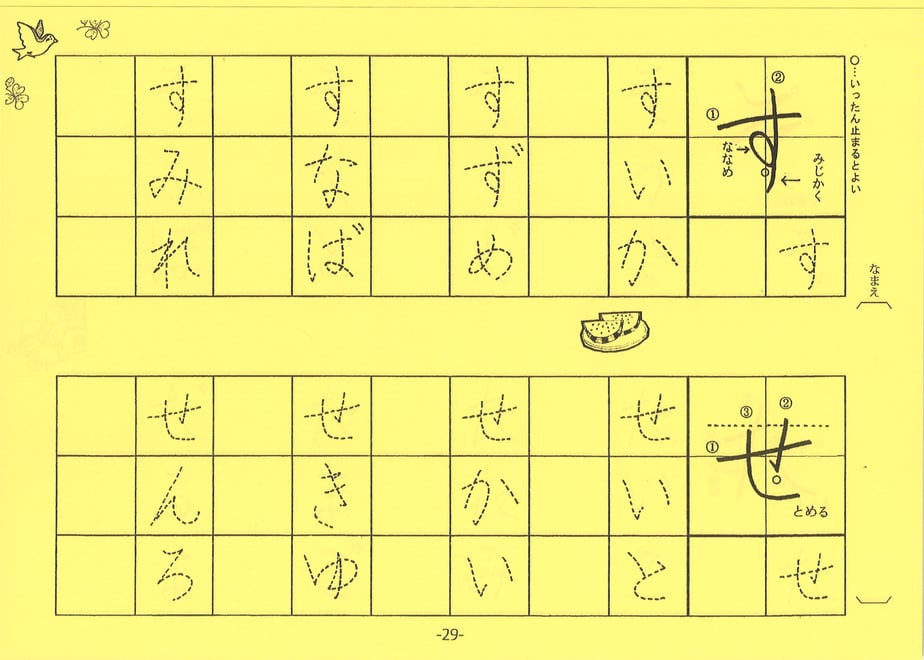 ○…いったん止まるとよい
なまえ
②
①
す
みじかく
ななめ
す
すいか
すずめ
すなば
すみれ
②
③
①
せ
とめる
せ
せいと
せかい
せきゆ
せんろ
-29-